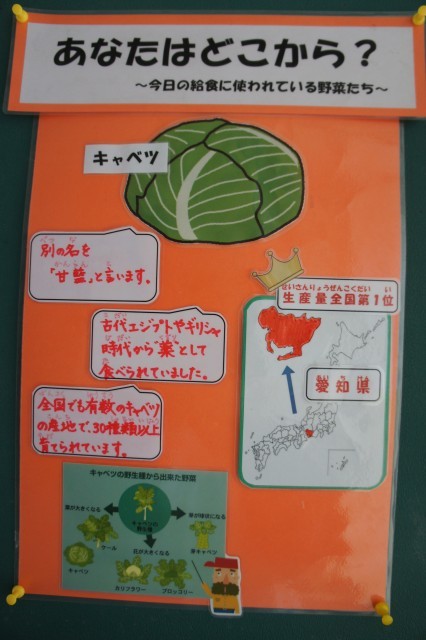 あなたはどこから？
～今日の給食に使われている野菜たち～
キャベツ
別の名を
「甘藍」と言います。
古代エジプトやギリシャ
時代から"薬"として
食べられていました。
せいさんりょうぜんこくだい い
生産量全国第1位
愛知県
全国でも有数のキャベツ
の産地で、30種類以上
育てられています。
キャベツの野生種から出来た野菜
葉が大きくなる
茎が球状になる
キャベツの
野生種
ケール
花が大きくなる
芽キャベツ
キャベツ
カリフラワー
ブロッコリー